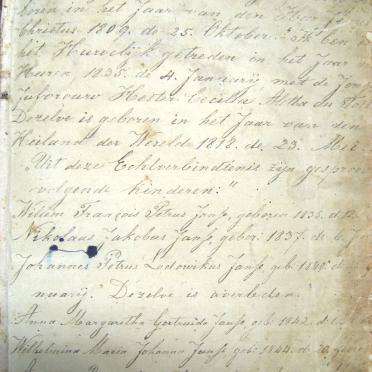 in het Jaar van den
Christus 1809. de 25. Oktober. Ik ben
het Huwelijk getreden in het Jaar
Heeren 1835. de 4. Januarij, met de
Juforouw Hester Cecilia
Dezelve is geboren in het Jaar van den
Heiland der Wereld 1812. de 23. Mei
"Uit deze Echtverbindtenis zijn
volgende kinderen:"
Willem François Petrus Janse, geboren 1835. d. 12.
Nikolaas Jakobus Janse, gebor: 1837. d. 6. J
Johannes Petrus Lodowikus Janse geb. 1840. d
nuarij. Dezelve is overleden.
Anna Margaretha Gertruida Janse, geb. 1842. d.
Wilhelmina Maria Johanna Janse, geb: 1844. d. 20.